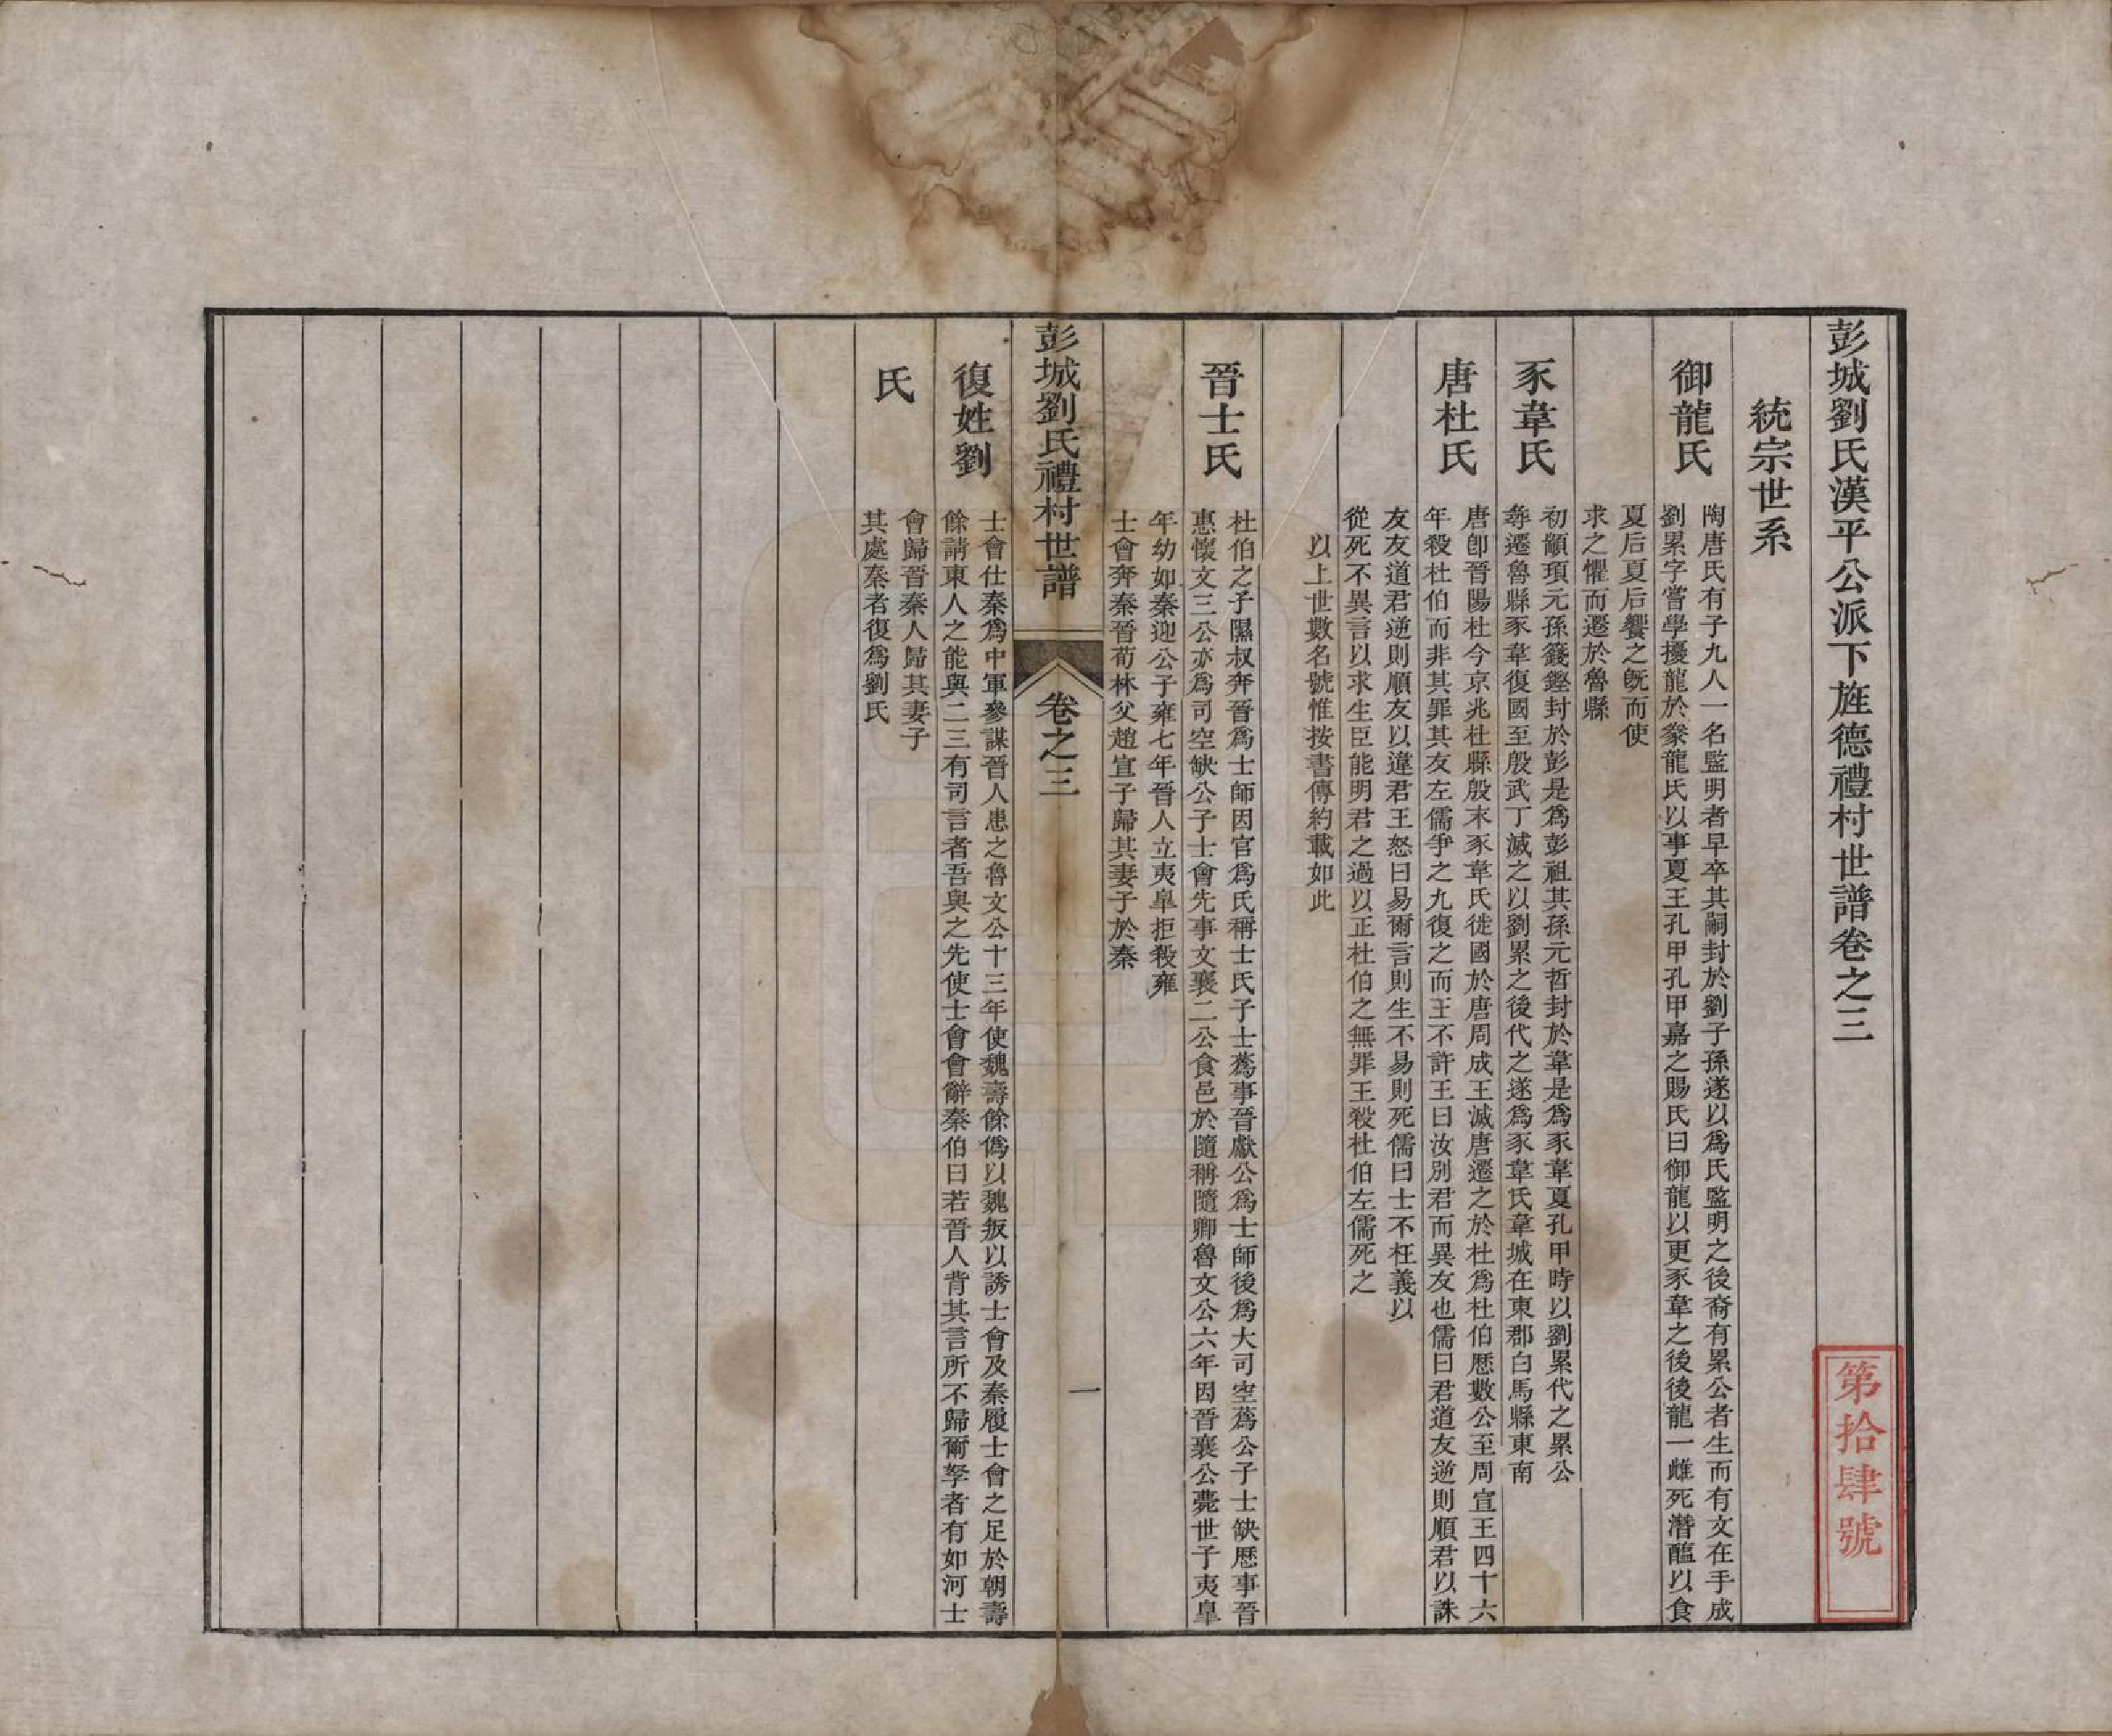 彭城劉氏漢平公派下旌德禮村世譜卷之三
第拾肆號
統宗世系
御龍氏
陶唐氏有子九人一名監明者早卒其嗣封於劉子孫遂以爲氏監明之後裔有累公者生而有文在手成
劉累字嘗學擾龍於豢龍氏以事夏王孔甲孔甲嘉之賜氏曰御龍以更豕韋之後後龍一雌死潛醢以食
夏后夏后饗之旣而使
求之懼而遷於魯縣
豕韋氏
初顓頊元孫籛鏗封於彭是爲彭祖其孫元哲封於韋是爲豕韋夏孔甲時以劉累代之累公
尋遷魯縣豕韋復國至殷武丁滅之以劉累之後代之遂爲豕韋氏韋城在東郡白馬縣東南
唐杜氏
唐卽晉陽杜今京兆杜縣殷末豕韋氏徙國於唐周成王滅唐遷之於杜爲杜伯歷數公至周宣王四十六
年殺杜伯而非其罪其友左儒爭之九復之而王不許王曰汝別君而異友也儒曰君道友逆則順君以誅
友友道君逆則順友以違君王怒曰易爾言則生不易則死儒曰士不枉義以
從死不異言以求生臣能明君之過以正杜伯之無罪王殺杜伯左儒死之
以上世數名號惟按書傳約載如此
晉士氏
杜伯之子隰叔奔晉爲士師因官爲氏稱士氏子士蒍事晉獻公爲士師後爲大司空蒍公子士缺歷事晉
惠懷文三公亦爲司空缺公子士會先事文襄二公食邑於隨稱隨卿魯文公六年因晉襄公薨世子夷皐
年幼如秦迎公子雍七年晉人立夷皐拒殺雍
士會奔秦晉荀林父趙宣子歸其妻子於秦
彭城劉氏禮村世譜
卷之三
一
復姓劉
士會仕秦爲中軍參謀晉人患之魯文公十三年使魏壽餘僞以魏叛以誘士會及秦履士會之足於朝壽
餘請東人之能與二三有司言者吾與之先使士會會辭秦伯曰若晉人背其言所不歸爾孥者有如河士
氏
會歸晉秦人歸其妻子
其處秦者復爲劉氏